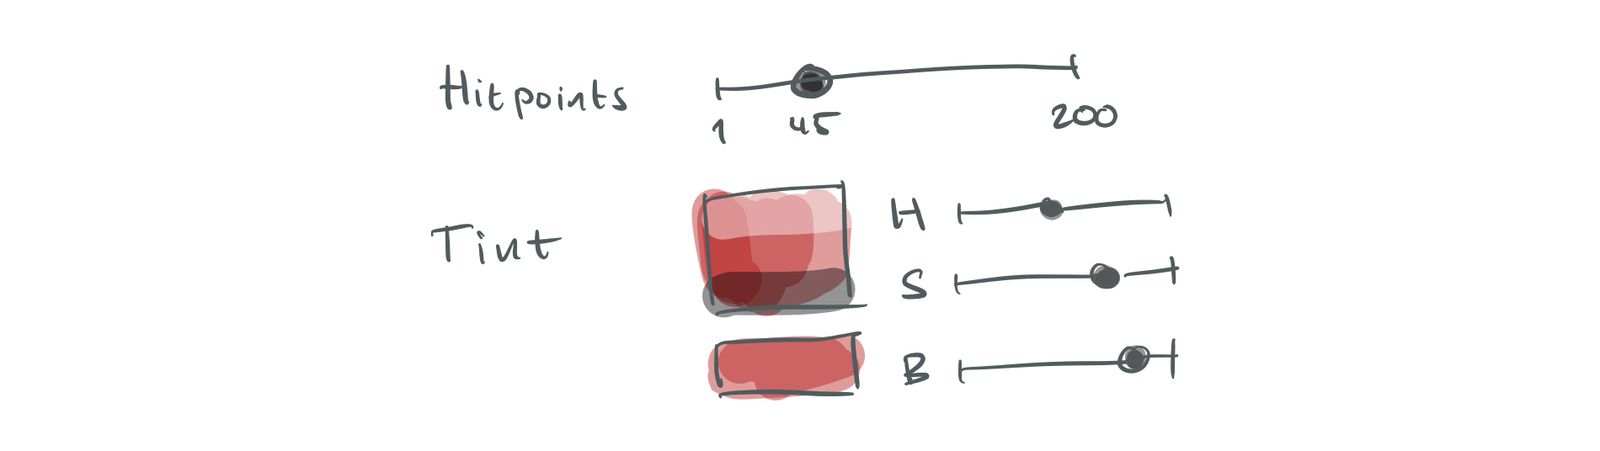 Hitpoints
1 45 200
Tint
H
S
B